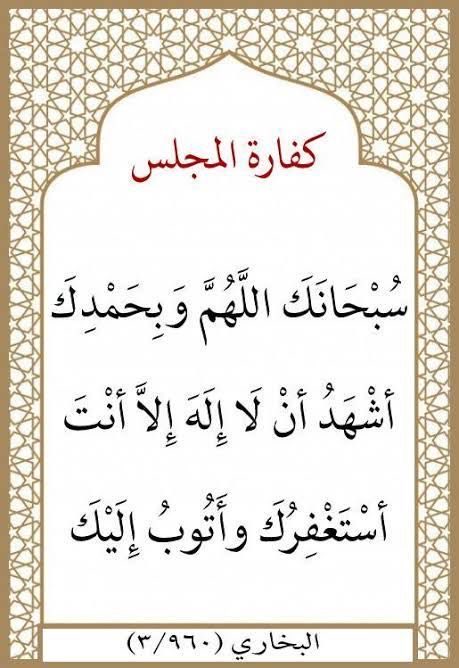 كفارة المجلس
سُبْحَانَكَ اللَّهُمَّ وَبِحَمْدِكَ
أشْهَدُ أنْ لَا إِلَهَ إِلاَّ أنْتَ
أسْتَغْفِرُكَ وأَتُوبُ إِلَيْكَ
البخاري (٣/٩٦٠)